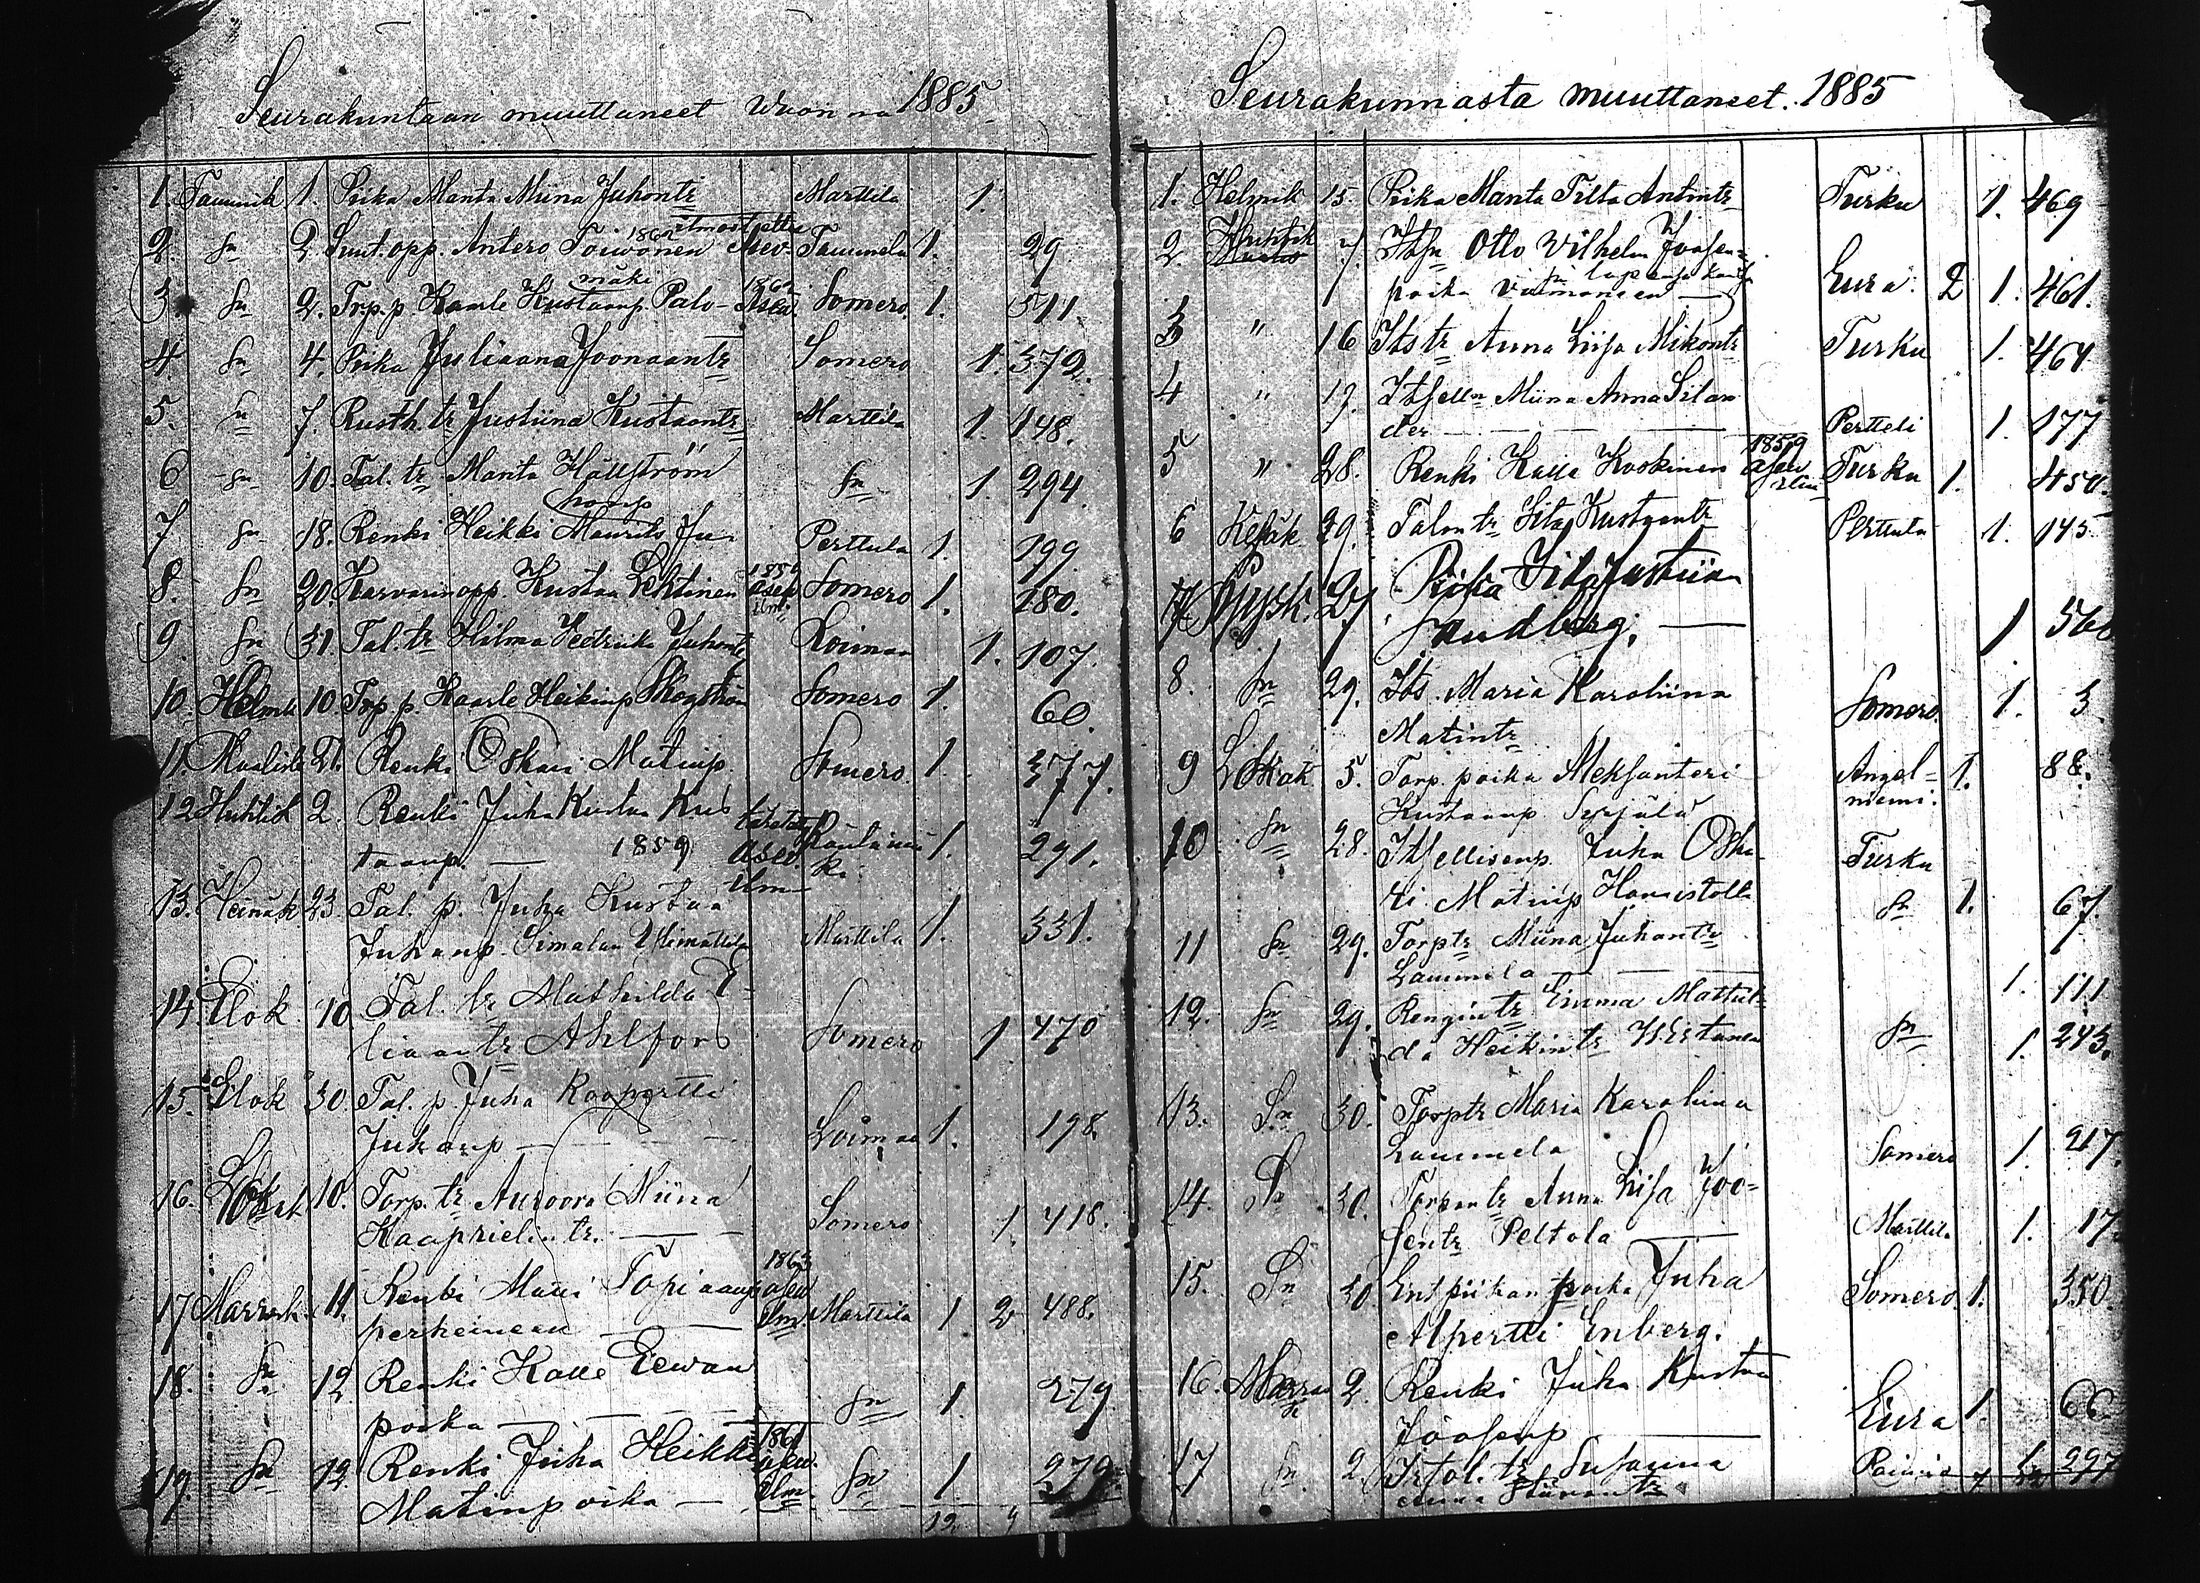 Seurakuntaan muuttaneet Vuonna 1885
1. Tammik 1. Piika Manta Miina Juhontr Marttila 1.
2. Sn 2. opp. Antero Toivonen Tammela 1. 29
mäki
3 Sn 2. Trp. p Kaarle Kustaanp. Palo- Somero. 1. 511
4. Sn 4. Piika Juliaana Joonaantr Somero 1. 372.
5. Sn 7. Rusth. tr Justiina Kustaantr Marttila 1. 148.
6 Sn 10. Tal. tr Manta Hällström Sn 1. 294
hanp
7 Sn 18. Renki Heikki Maurits Ju- Perttula 1. 199
8. Sn 20. Karvarinopp. Kustaa Lehtinen Asev Ilm. Somero 1. 180.
9. Sn 31. Tal. tr Hilma Juhontr Loimaa 1. 107.
10. Helmik 10. Torp p. Kaarle Heikinp Skogström Somero 1. 60.
11. Maalisk 21. Renki Oskari Matinp. Somero. 1. 377.
12 Huhtik 2. Renki Juha Kustaa Kus
taanp. — 1859 Asev. Ilm 1. 291.
13. Heinäk 23. Tal. p. Juha Kustaa
Juhanp. Simalan Marttila 1. 331.
14. Elok 10 Tal. tr Mathilda E-
liaantr Ahlfors Somero 1 470
15. Elok 30. Tal. p. Juha Roopertti
Juhanp — Loimaa 1. 198.
16. Lokak 10. Torp. tr Auroora Miina
Kaaprielintr. — Somero 1. 418.
17 Marrask. 11. Renki Topiaanp 1863 asev
perheineen — Ilm Marttila 1. 2 488.
18. Sn 12 Renki Kalle Eewan
poika — Sn 1. 279.
19. Sn 12. Renki Juha Heikki 1861 asev.
Matinpoika — Ilm. Sn 1 279.
19 4
Seurakunnasta muuttaneet. 1885
1. Helmik 15. Piika Manta Tilta Antintr Turku 1. 469
2. Huhtik 7. Otto Vilhelm Joosen-
poika Eura. 2 1. 461.
3 " 16 Itstr Anna Liisa Mikontr Turku 1. 464
4 " 17. Miina Anna Silan
der — Pertteli 1. 177
5 " 28. Renki Kalle Koskinen 1859 Asev Ilm Turku 1. 450.
6 Kesäk 29. Talon tr Kustaantr Perttula 1. 145
7 Syysk. 27 Piika Justiina
Sandberg. — 1 560
8. Sn 29. Its. Maria Karoliina
Matintr Somero. 1. 3
9 Lokak 5. Torp. poika Aleksanteri
Kustaanp. Angel-
niemi. 1. 88.
10 Sn 28. Itsellisenp. Juha Oska-
ri Matinp Turku 1. 67.
11 Sn 29. Torptr Miina Juhontr
Lammela — Sn 1. 111
12. Sn 29. Rengintr Emma Mattil-
da Heikintr Sn 1. 243.
13. Sn 30. Torptr Maria Karoliina
Lammela Somero 1. 217.
14. Sn 30. Anna Liisa Joo-
sentr Peltola — Marttila 1. 17
15. Sn 30. Ent piikan poika Juha
Alpertti Enberg. Somero. 1. 350.
16. Marrask 2. Renki Juha Kustaa
Joosenp — Eura 1. 66.
17 Sn. 2. tr Susanna
1. 297